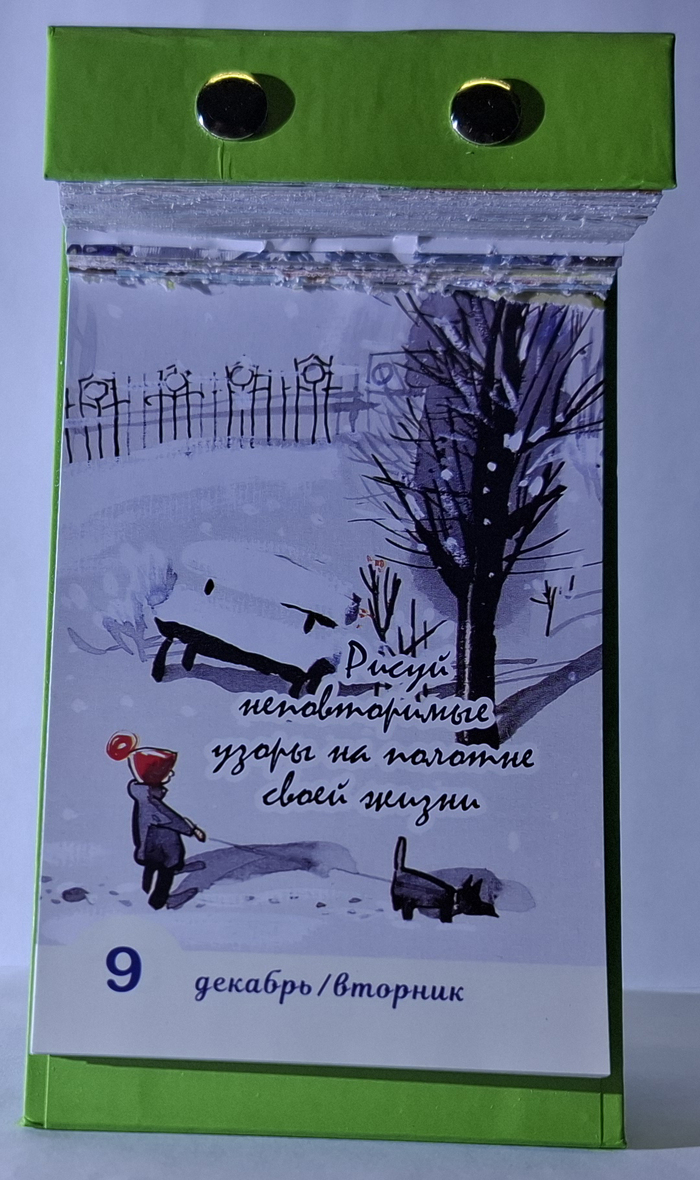 Рисуй
неповторимые
узоры на полотне
своей жизни
9
декабрь/вторник